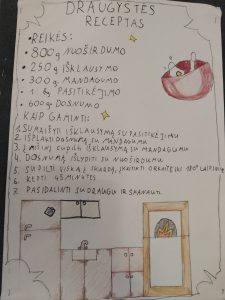 DRAUGYSTĖS
RECEPTAS
• REIKĖS:
• 800g NUOŠIRDUMO
• 250g IŠKLAUSYMO
• 300g MANDAGUMO
• 1 PASITIKĖJIMO
• 600g DOSNUMO
• KAIP GAMINTI:
1. SUMAIŠYTI IŠKLAUSYMĄ SU PASITIKĖJIMU
2. IŠPLAKTI DOSNUMĄ SU MANDAGUMU
3. Į MIŠINĮ SUPILTI IŠKLAUSYMĄ SU MANDAGUMU
4. DOSNUMĄ IŠLYDITI SU NUOŠIRDUMU
5. SUPILTI VISKĄ Į SKARDĄ, ĮKAITINTI ORKAITĘ IKI 180°
6. KEPTI 45 MINUTES
7. PASIDALINTI SU DRAUGU IR SKANAUTI